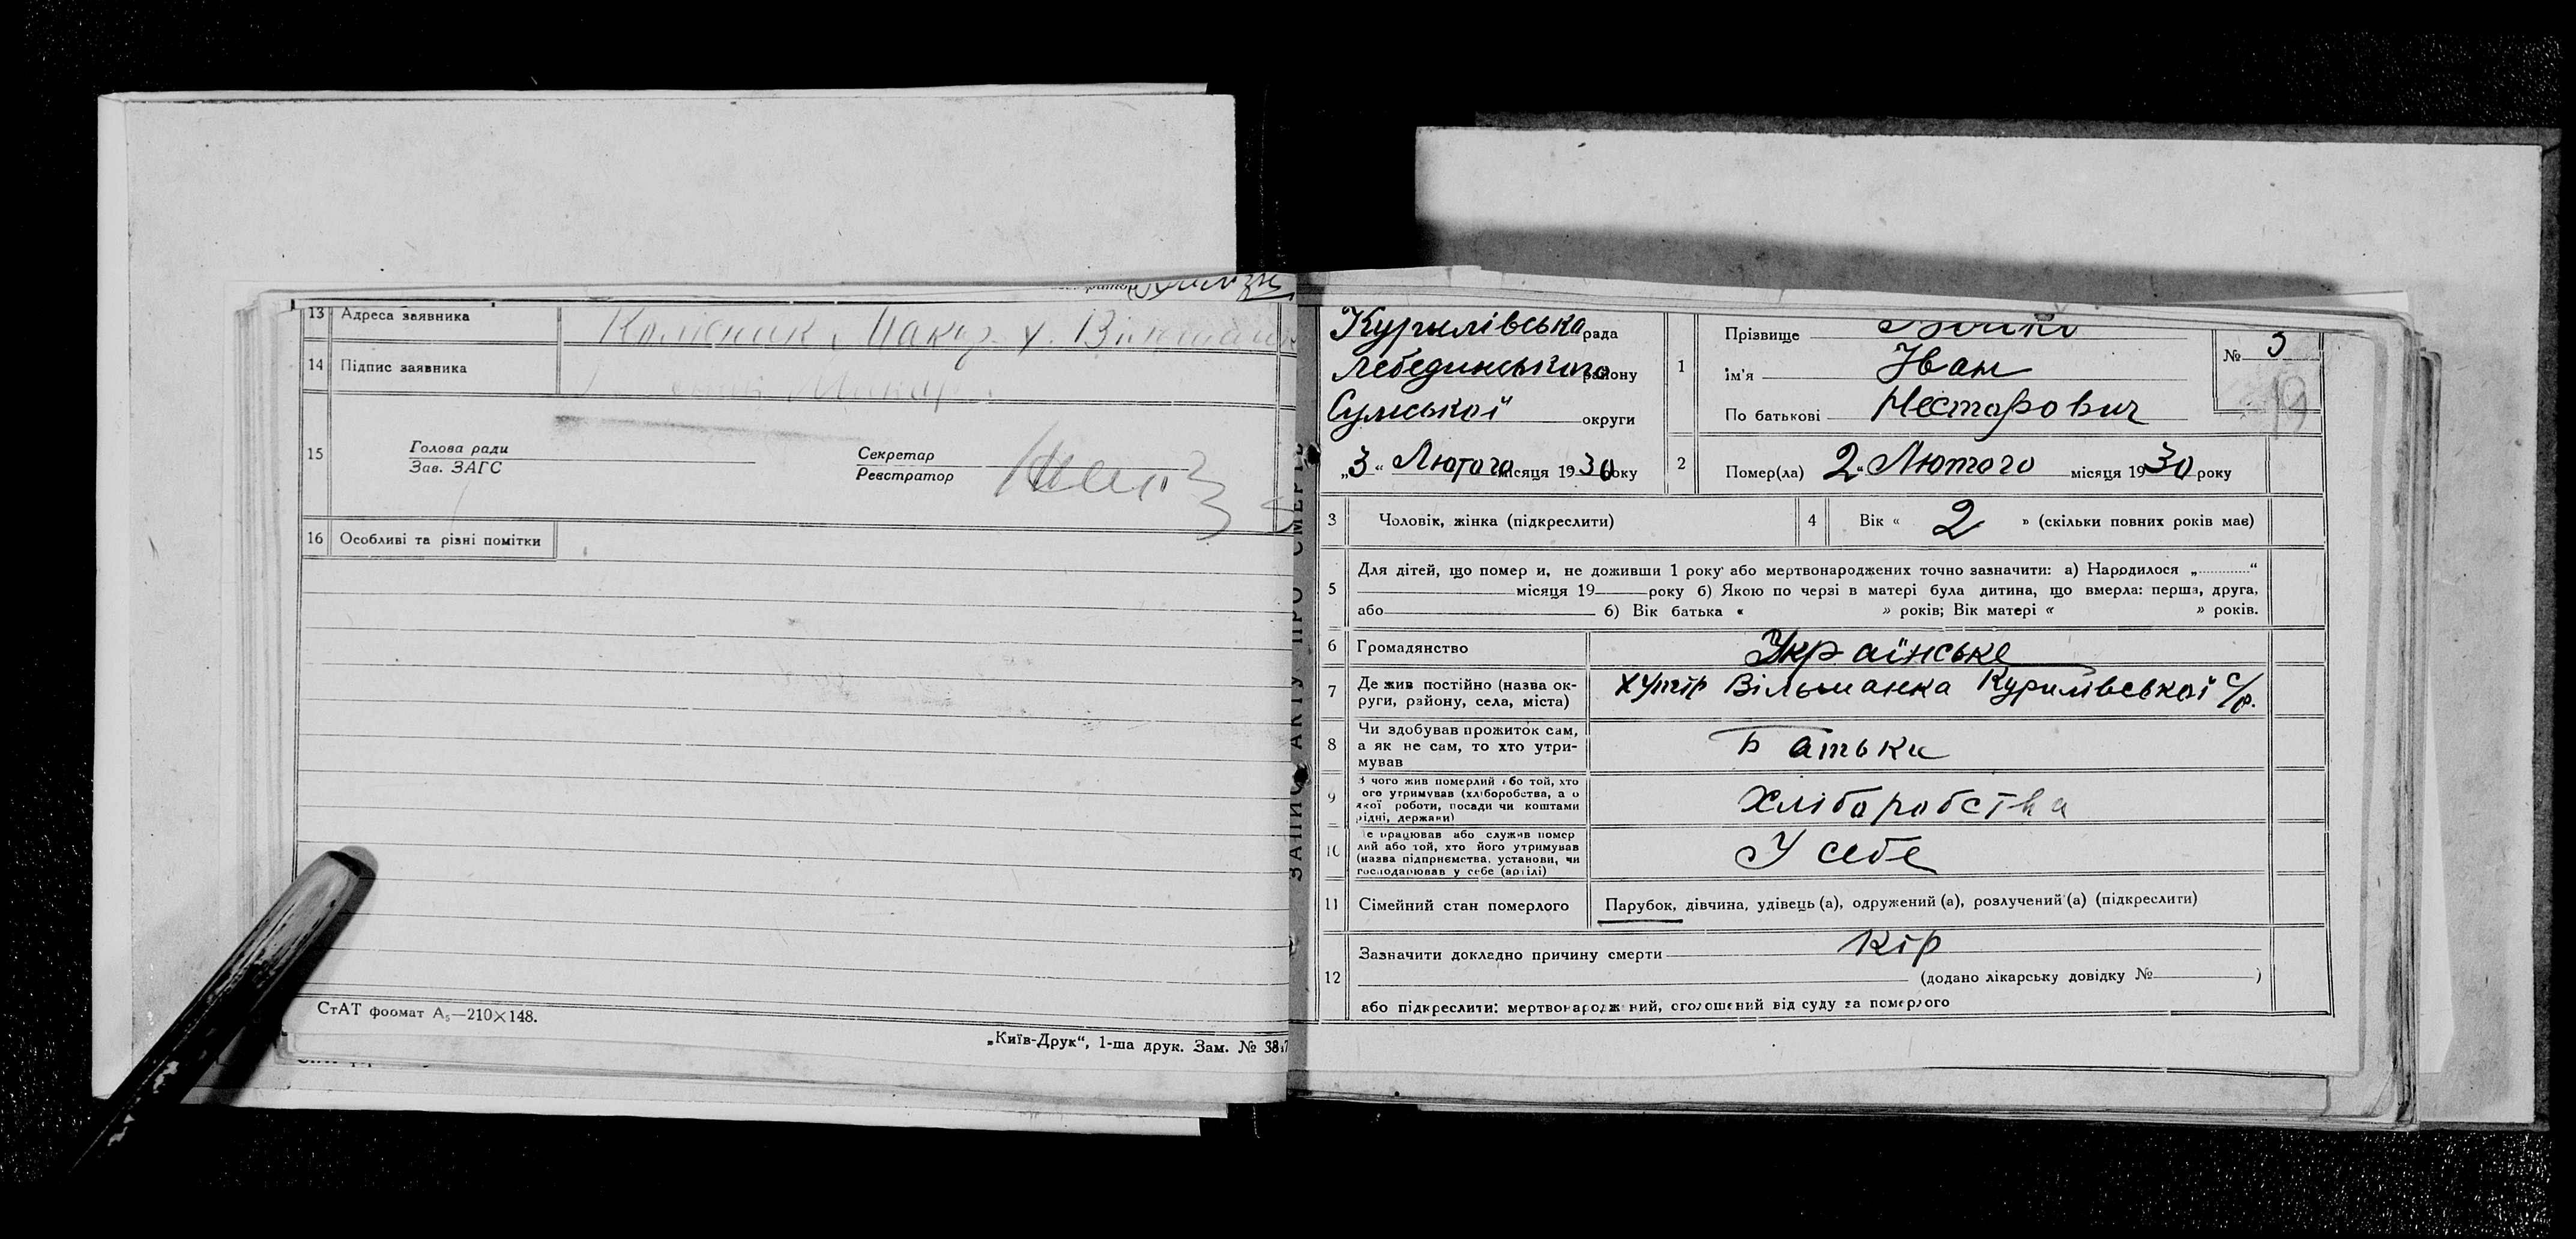 13 Адреса заявника Колісник Макар х. Вільшанк
14 Підпис заявника
15 Голова ради
Зав. ЗАГС
Секретар
Реєстратор
16 Особливі та різні помітки
СтАТ формат А₅—210×148.
„Київ-Друк“, 1-ша друк. Зам. №
ЗАПИС АКТУ ПРО СМЕРТЬ
Курилівська рада
Лебединського району
Сумської округи
„3“ Лютого місяця 1930 року
1 Прізвище Бойко
Ім'я Іван
По батькові Нестарович
№ 3
19
2 Помер(ла) 2 „ Лютого місяця 1930 року
3 Чоловік, жінка (підкреслити)
4 Вік « 2 » (скільки повних років має)
5 Для дітей, що помер и, не доживши 1 року або мертвонароджених точно зазначити: а) Народилося „............“
місяця 19 року б) Якою по черзі в матері була дитина, що вмерла: перша, друга,
або б) Вік батька « » років; Вік матері « » років.
6 Громадянство Українське
7 Де жив постійно (назва ок-
руги, району, села, міста) хутір Вільшанка Курилівської с/р.
8 Чи здобував прожиток сам,
а як не сам, то хто утри-
мував Батьки
9 З чого жив померлий або той, хто
ого утримував (хліборобства, а о
якої роботи, посади чи коштами
рідні, держави) Хліборобства
10 Де працював або служив помер
лий або той, хто його утримував
(назва підприємства, установи, чи
господарював у себе (артілі) У себе
11 Сімейний стан померлого Парубок, дівчина, удівець (а), одружений (а), розлучений (а) (підкреслити)
12 Зазначити докладно причину смерти Кір
(додано лікарську довідку № )
або підкреслити: мертвонароджений, оголошений від суду за померлого